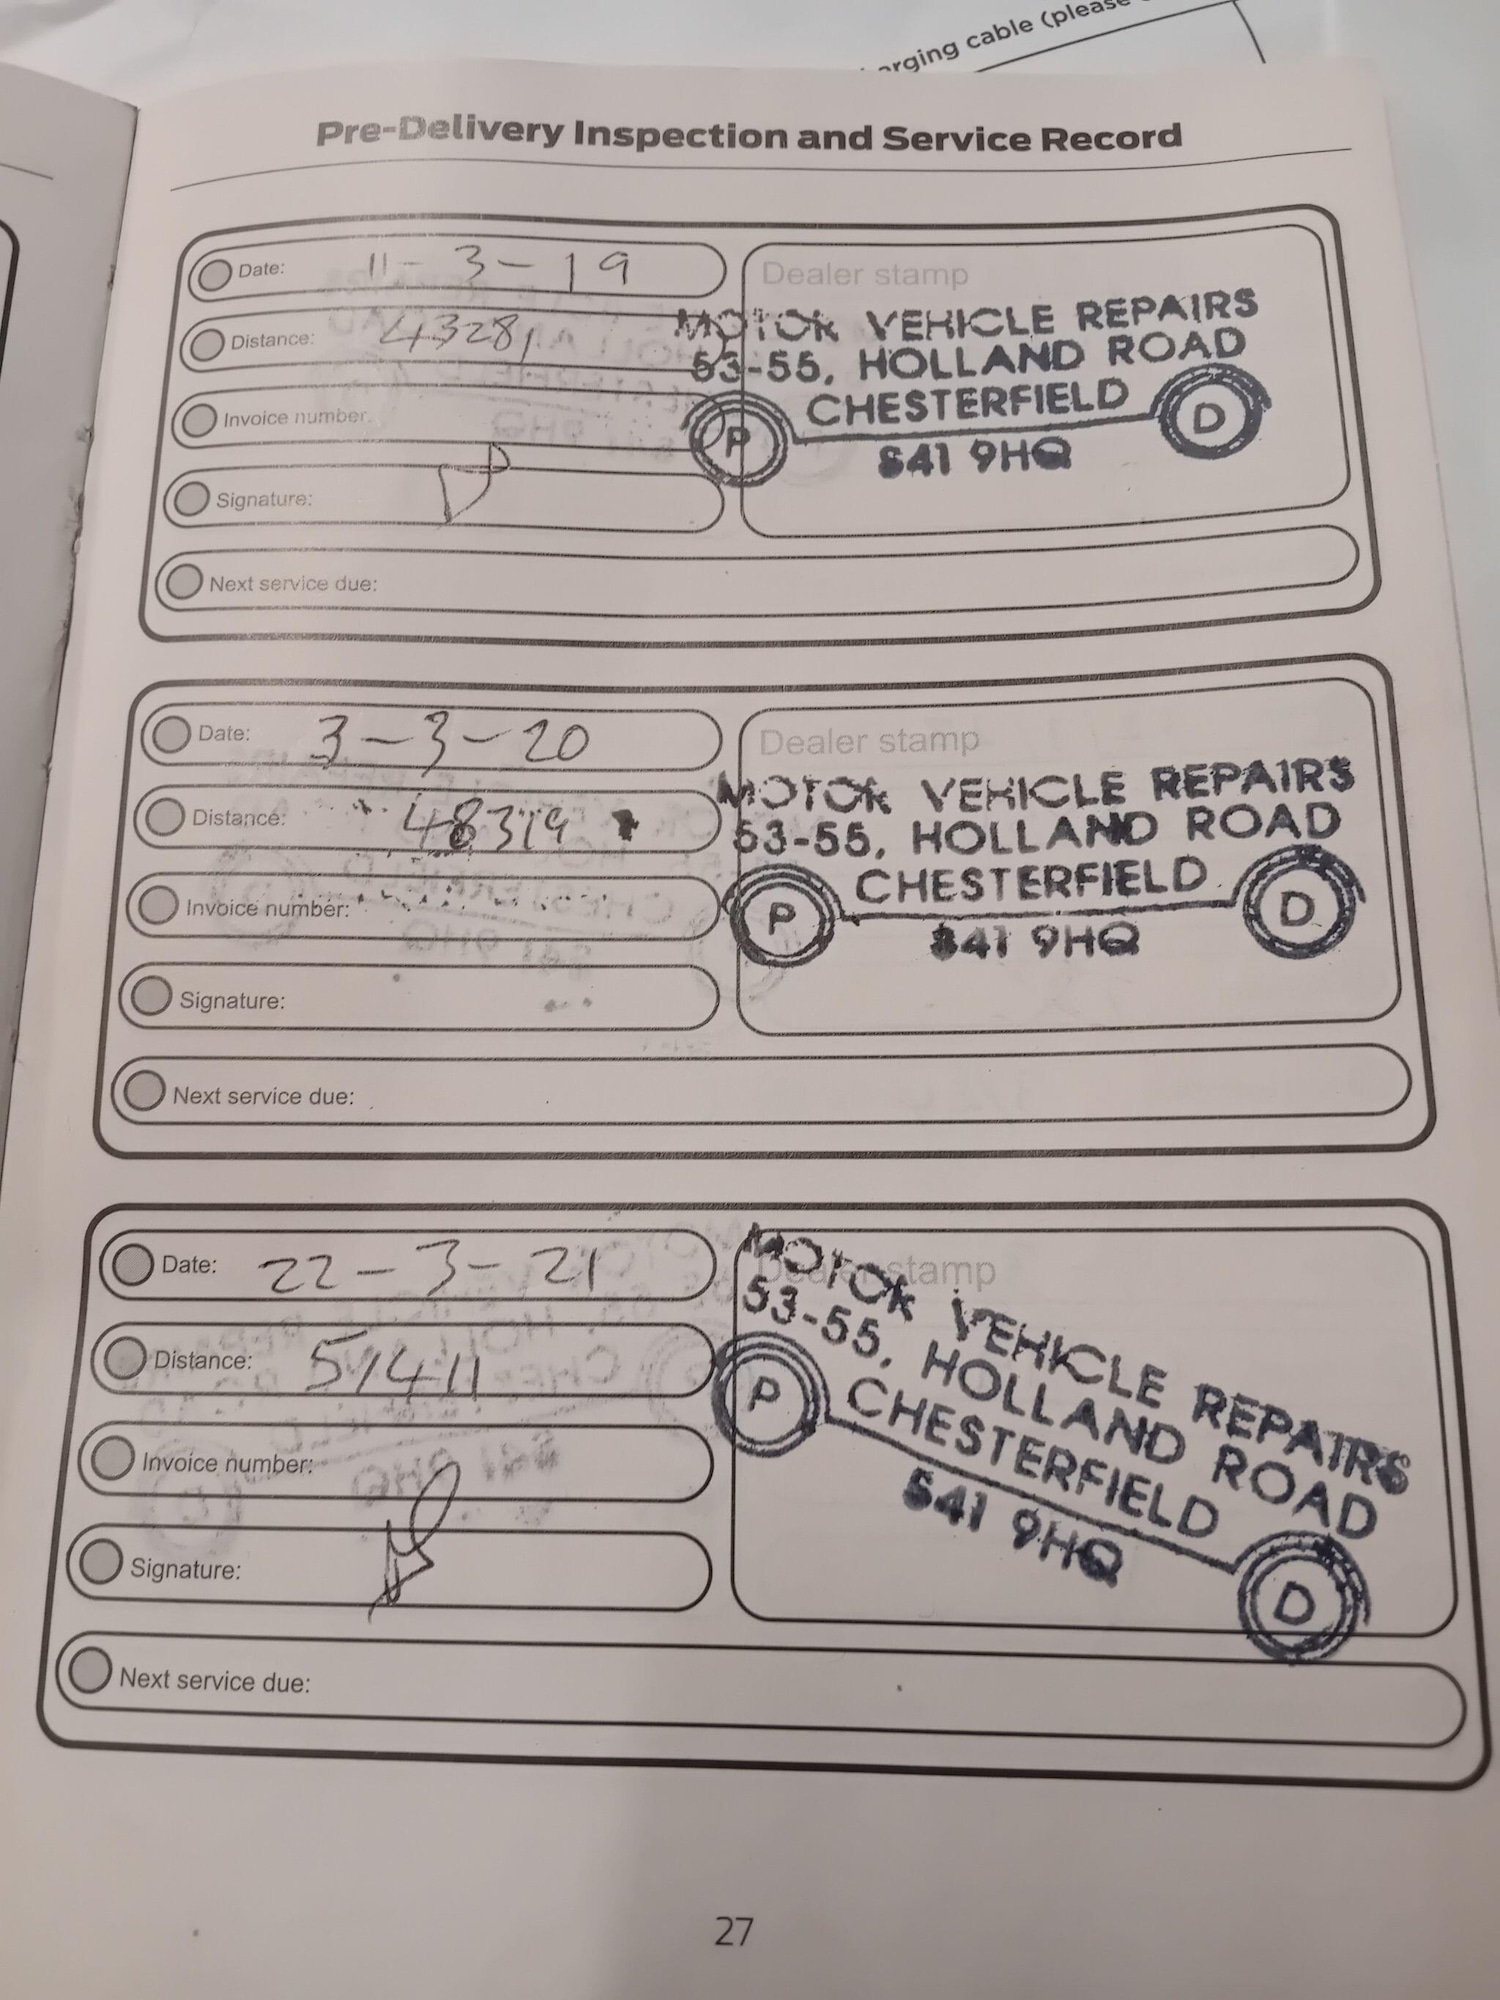 arging cable (please
Pre-Delivery Inspection and Service Record
Date: 11-3-19
Distance: 43281
Invoice number:
Signature:
Next service due:
Dealer stamp
MOTOR VEHICLE REPAIRS
53-55, HOLLAND ROAD
CHESTERFIELD
P D
S41 9HQ
Date: 3-3-20
Distance: 48319
Invoice number:
Signature:
Next service due:
Dealer stamp
MOTOR VEHICLE REPAIRS
53-55, HOLLAND ROAD
CHESTERFIELD
P D
S41 9HQ
Date: 22-3-21
Distance: 51411
Invoice number:
Signature:
Next service due:
Dealer stamp
MOTOR VEHICLE REPAIRS
53-55, HOLLAND ROAD
CHESTERFIELD
P D
S41 9HQ
27